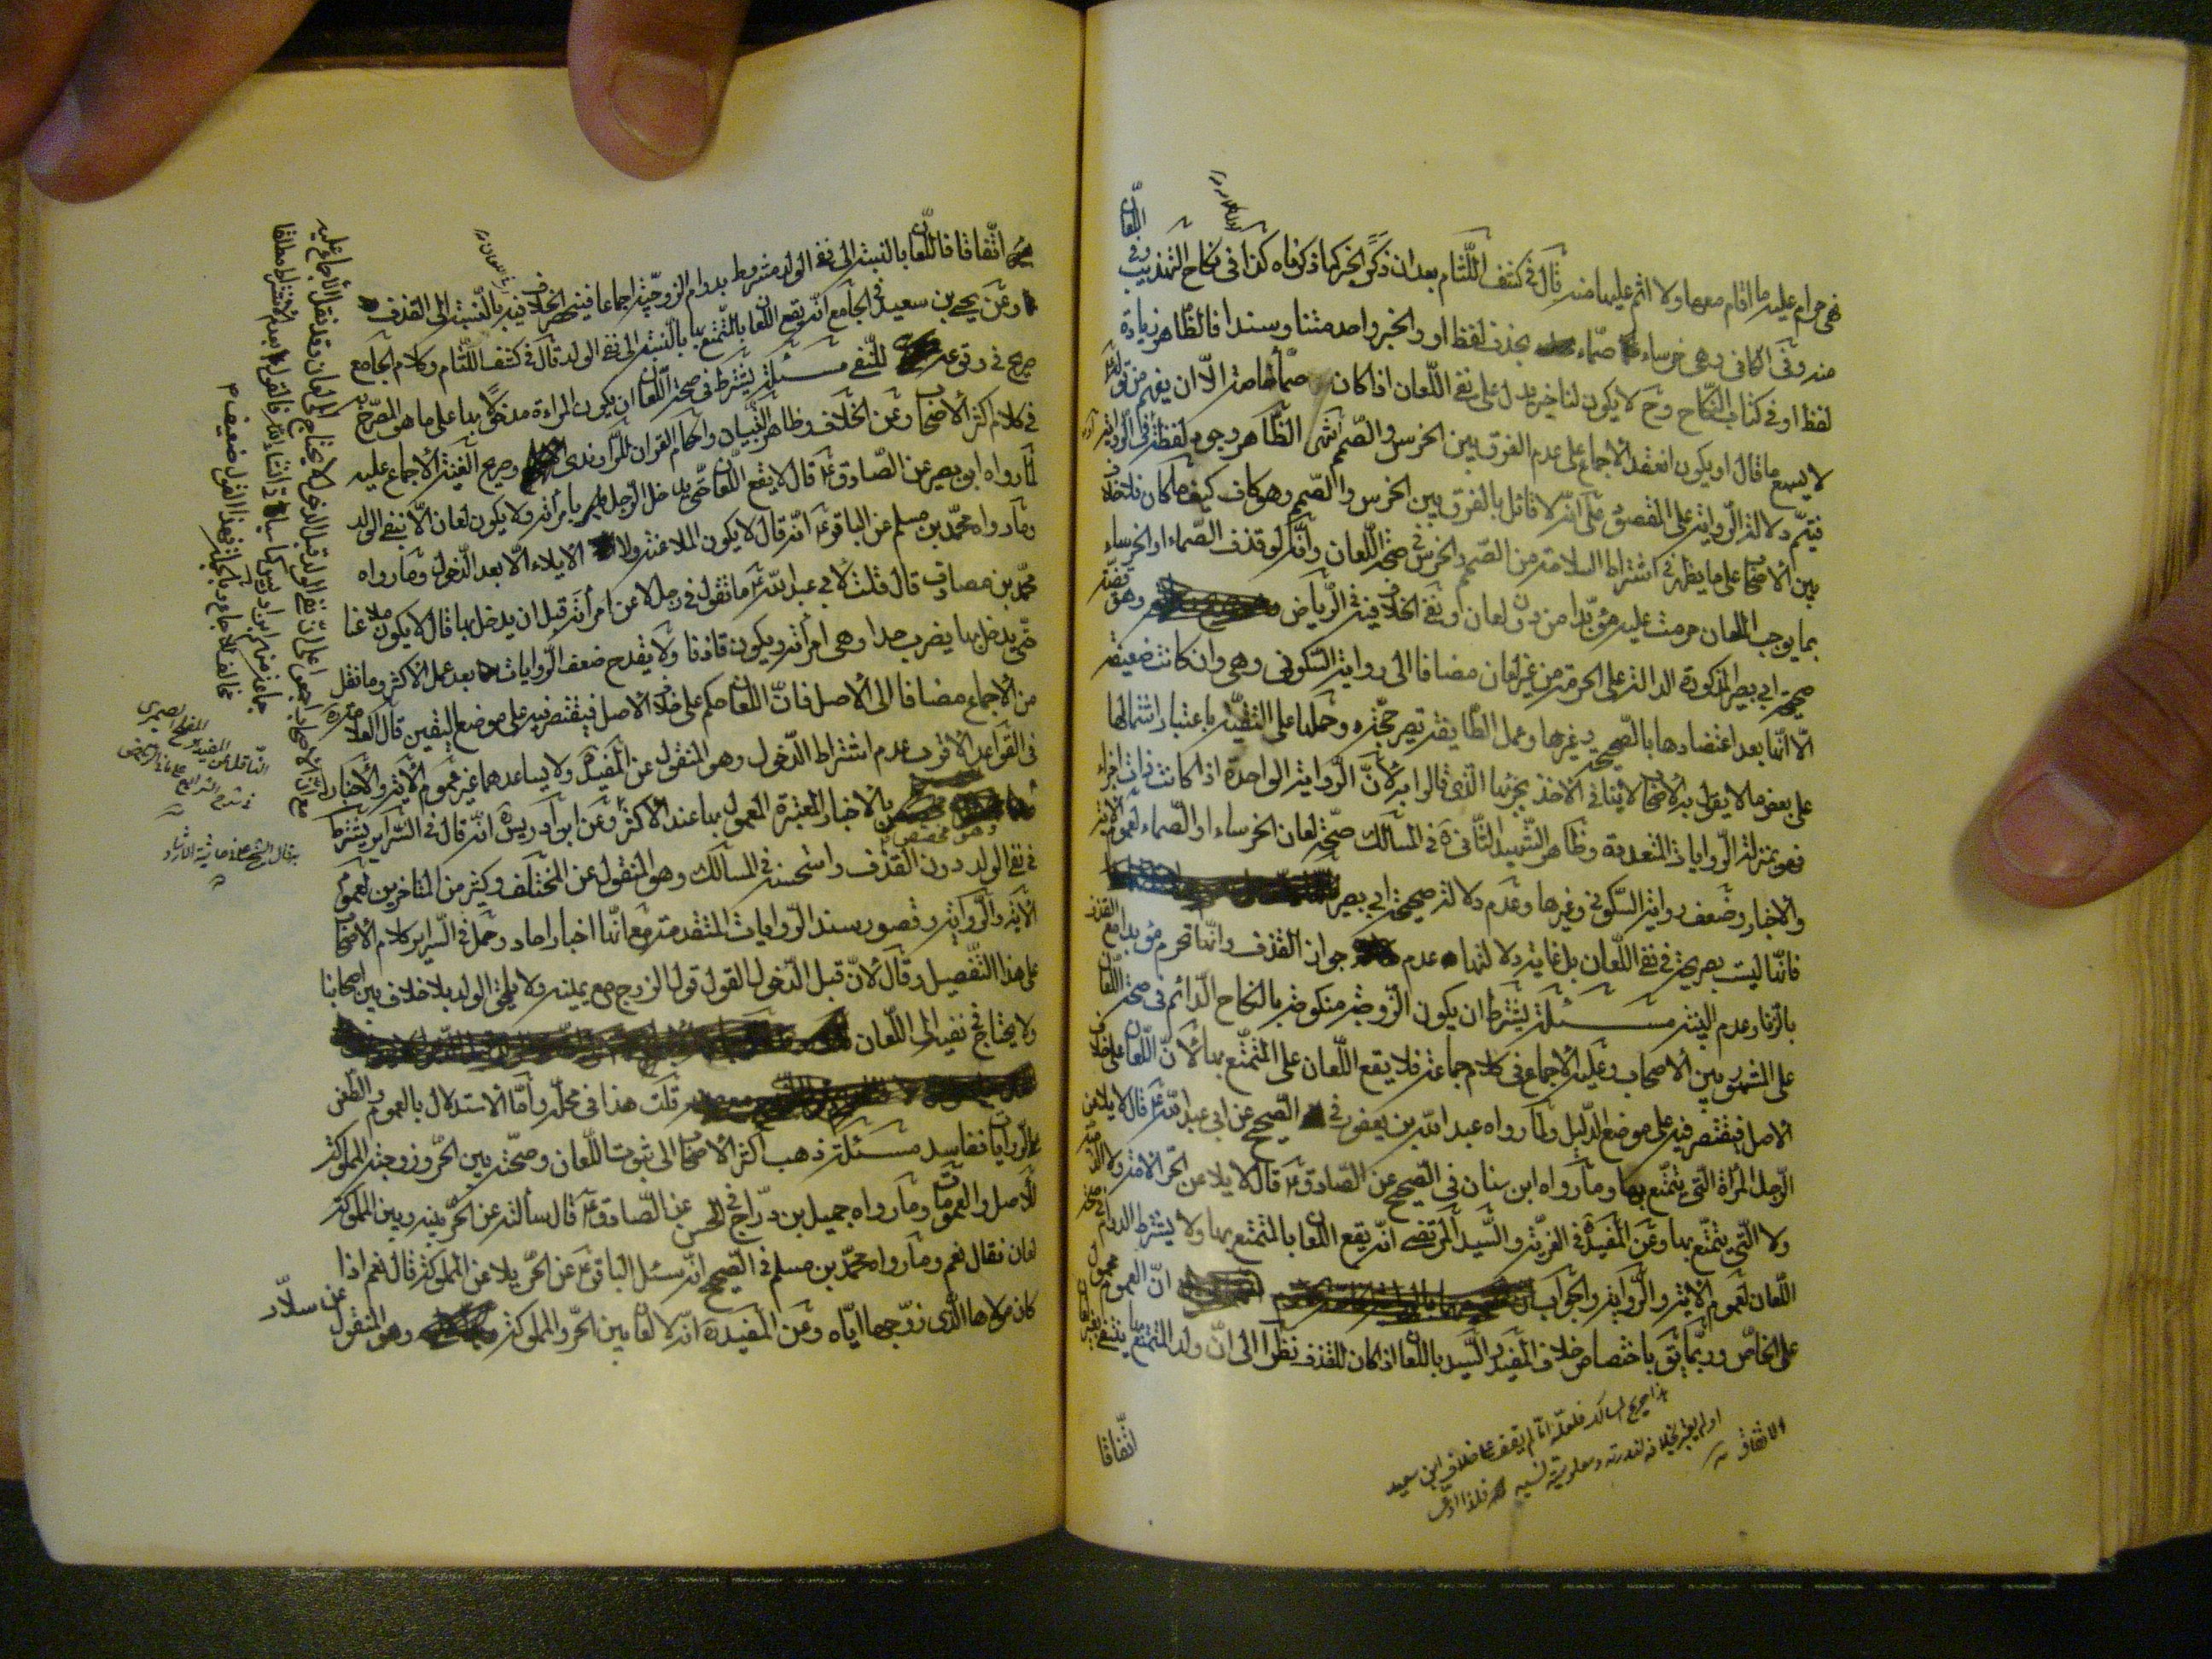 فهي حرام عليه ما اقام معها ولا اثم عليها منه قال في كشف اللثام بعد ان ذكر الخبر كما ذكرناه كذا في نكاح التهذيب وفي
منه وفي الكافي وهي خرساء صماء بحذف لفظ او والخبر واحد متنا وسندا فالظاهر زيادة
لفظ او في كتاب النكاح وح لا يكون لنا خبر يدل على نفي اللعان اذا كان صماء خاصة الا ان يفهم من قوله
لا يسمع ما قال او يكون انعقد الاجماع على عدم الفرق بين الخرس والصمم انتهى الظاهر وجود لفظة او في الرواية
فيتم دلالة الرواية على المقصود على انه لا قائل بالفرق بين الخرس والصمم وهو كاف كيف ما كان فلا خلاف
بين الاصحاب على ما يظهر في اشتراط السلامة من الصمم والخرس في صحة اللعان وانه لو قذف الصماء او الخرساء
بما يوجب اللعان حرمت عليه مؤبدا من دون لعان ونفى الخلاف فيه في الرياض وهو قضية
صحيحة ابي بصير المذكورة الدالة على الحرمة من غير لعان مضافا الى رواية السكوني وهي وان كانت ضعيفة
الا انها بعد اعتضادها بالصحيحة وغيرها وعمل الطايفة تصير حجة وحملها على التقية باعتبار اشتمالها
على بعض ما لا يقول به الاصحاب لا ينافي الاخذ بجزئها الذي قالوا به لان الرواية الواحدة اذا كانت ذات اجزاء
فهو بمنزلة الروايات المتعددة وظاهر الشهيد الثاني ره في المسالك صحة لعان الخرساء او الصماء لعموم الاية
والاخبار وضعف رواية السكوني وغيرها وعدم دلالة صحيحة ابي بصير
فانها ليست بصريحة في نفي اللعان بل غاية دلالتها عدم جواز القذف وانها تحرم مؤبدا مع القذف
بالزنا وعدم البينة مسئلة يشترط ان يكون الزوجة منكوحة بالنكاح الدائم في صحة اللعان
على المشهور بين الاصحاب وعليه الاجماع في كلام جماعة فلا يقع اللعان على المتمتع بها لان اللعان على خلاف
الاصل فيقتصر فيه على موضع الدليل ولما رواه عبد الله بن يعفور في الصحيح عن ابي عبد الله ع قال لا يلاعن
الرجل المرأة التي يتمتع بها وما رواه ابن سنان في الصحيح عن الصادق ع قال لا يلاعن الحر الامة ولا الذمية
ولا التي يتمتع بها وعن المفيد في الغرية والسيد المرتضى انه يقع اللعان بالمتمتع بها ولا يشترط الدوام في صحة
اللعان لعموم الاية والرواية والجواب ان العموم محمول
على الخاص وربما يق باختصاص خلاف المفيد والسيد باللعان اذا كان للقذف نظرا الى ان ولد المتمتع بها ينتفي بغير لعان
اتفاقا
اتفاقا فاللعان بالنسبة الى نفي الولد مشروط بدوام الزوجية اجماعا فينحصر الخلاف فيه بالنسبة الى القذف
وعن يحيى بن سعيد في الجامع انه يقع اللعان بالمتمتع بها بالنسبة الى نفي الولد قال في كشف اللثام وكلام الجامع
صريح في وقوعه للنفي مسئلة يشترط في صحة اللعان ان يكون المراءة مدخولا بها على ما هو المصرح به
في كلام اكثر الاصحاب وعن الخلاف وظاهر التبيان واحكام القران للراوندي وصريح الغنية الاجماع عليه
لما رواه ابو بصير عن الصادق ع قال لا يقع اللعان حتى يدخل الرجل بامرأته ولا يكون لعان الا بنفي الولد
وما رواه محمد بن مسلم عن الباقر ع انه قال لا يكون الملاعنة ولا الايلاء الا بعد الدخول وما رواه
محمد بن مصادف قال قلت لابي عبد الله ع ما تقول في رجل لاعن امرأته قبل ان يدخل بها قال لا يكون ملاعنا
حتى يدخل بها يضرب حدا وهي امرأته ويكون قاذفا ولا يقدح ضعف الروايات بعد عمل الاكثر وما نقل
من الاجماع مضافا الى الاصل فان اللعان حكم على خلاف الاصل فيقتصر فيه على موضع اليقين قال العلامة ره
في القواعد الاقرب عدم اشتراط الدخول وهو المنقول عن المفيد ولا يساعدهما غير عموم الاية والاخبار
وهو مخصص بالاخبار المعتبرة المعمول بها عند الاكثر وعن ابن ادريس ره انه قال في السراير يشترط
في نفي الولد دون القذف واستحسنه في المسالك وهو المنقول عن المختلف وكثير من المتاخرين لعموم
الاية والرواية وقصور سند الروايات المتقدمة مع انها اخبار احاد وحمل في السراير كلام الاصحاب
على هذا التفصيل وقال لان قبل الدخول القول قول الزوج مع يمينه ولا يلحق الولد بلا خلاف بين اصحابنا
ولا يحتاج في نفيه الى اللعان
قلت هذا في محله واما الاستدلال بالعموم والطعن
على الروايات ففاسد مسئلة ذهب اكثر الاصحاب الى ثبوت اللعان وصحته بين الحر وزوجته المملوكة
للاصل والعمومات وما رواه جميل بن دراج في الحسن عن الصادق ع قال سألته عن الحر بينه وبين المملوكة
لعان فقال نعم وما رواه محمد بن مسلم في الصحيح انه سئل الباقر ع عن الحر يلاعن المملوكة قال نعم اذا
كان مولاها الذي زوجها اياه وعن المفيد ره انه لا لعان بين الحر والمملوكة وهو المنقول
عن سلار